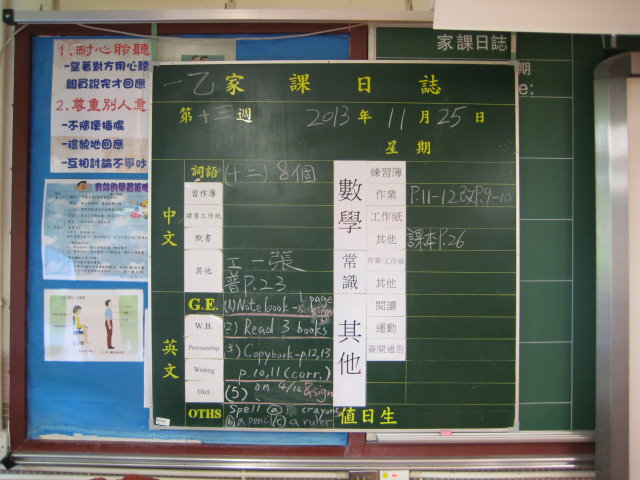 1.耐心聆聽
-望著對方用心聽
組員說完才回應
2.尊重別人意
-不隨便插嘴
-禮貌地回應
-互相討論不爭吵
有效的學習策略
家課日誌
期
e:
一乙 家課日誌
第十三週 2013年11月25日
星期
中文
詞語 (十二) 8個
習作簿
課業工作紙
默書
其他 工一張
普P.23
英文
G.E. (1) Notebook - 1 page & sign
W.B. 2) Read 3 books
Penmanship 3) Copybook - p.12,13
Writing p.10,11 (corr.)
Dict. (5) on 4/12 & sign
OTHS Spell (a) crayons
(b) a pencil (c) a ruler
數學
練習簿
作業 P.11-12改P.9-10
工作紙
其他 課本P.26
常識
作業/工作紙
其他
其他
閱讀
運動
簽閱通告
值日生